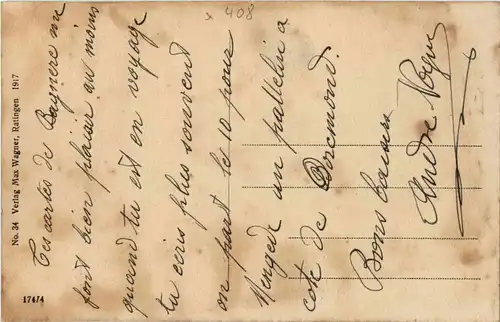 x 408
Tes cartes de Bagnere me
font bien plaisir au moins
quand tu est en voyage
tu ecris plus souvent
on part le 10 pour
au palbelin a
cote de Doremond.
Bons baisers
André
No. 34 Verlag Max Wagner, Ratingen 1917
174/4